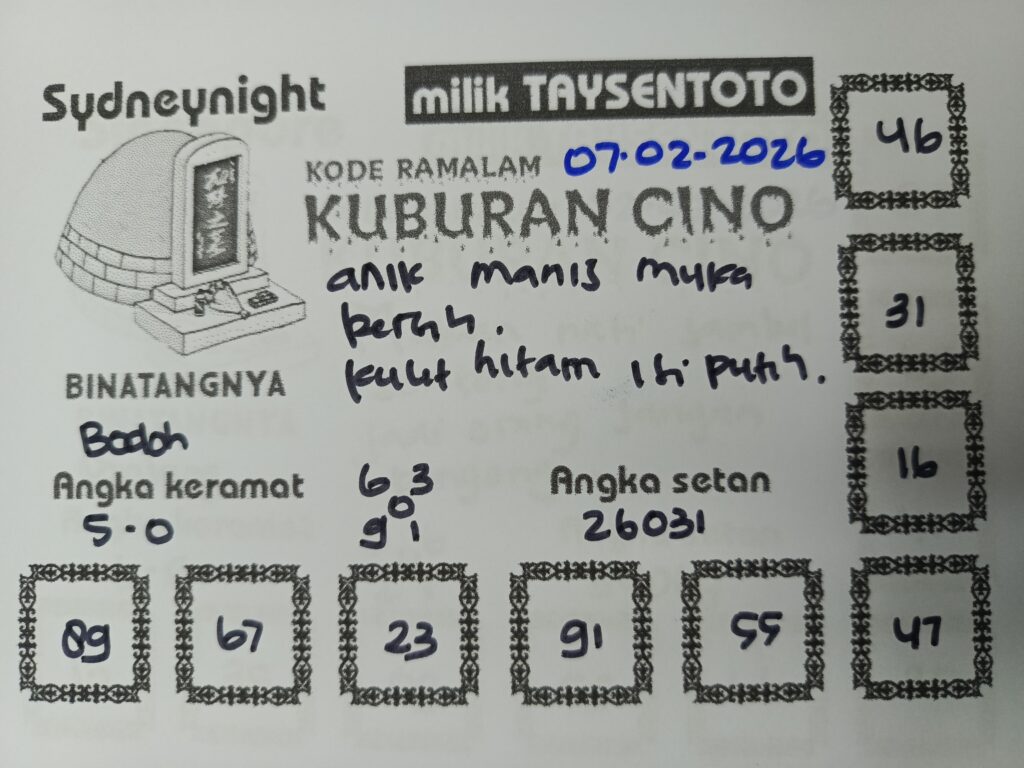 Sydneynight
milik TAYSENTOTO
KODE RAMALAM 07-02-2026
KUBURAN CINO
anik manis muka
kulit hitam isi putih.
BINATANGNYA
Badoh
Angka keramat
5-0
6 3
0
9 1
Angka setan
26031
46
31
16
89 67 23 91 55 47